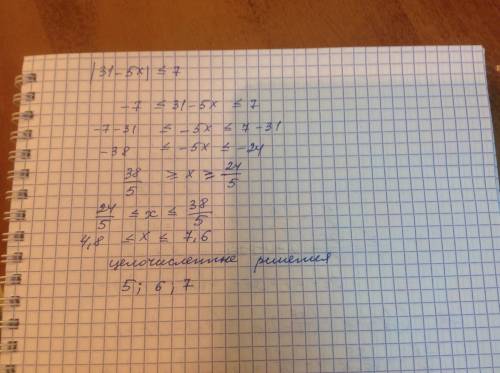 |31-5x| ≤ 7
-7 ≤ 31-5x ≤ 7
-7-31 ≤ -5x ≤ 7-31
-38 ≤ -5x ≤ -24
38/5 ≥ x ≥ 24/5
24/5 ≤ x ≤ 38/5
4,8 ≤ x ≤ 7,6
целочисленные решения
5; 6; 7